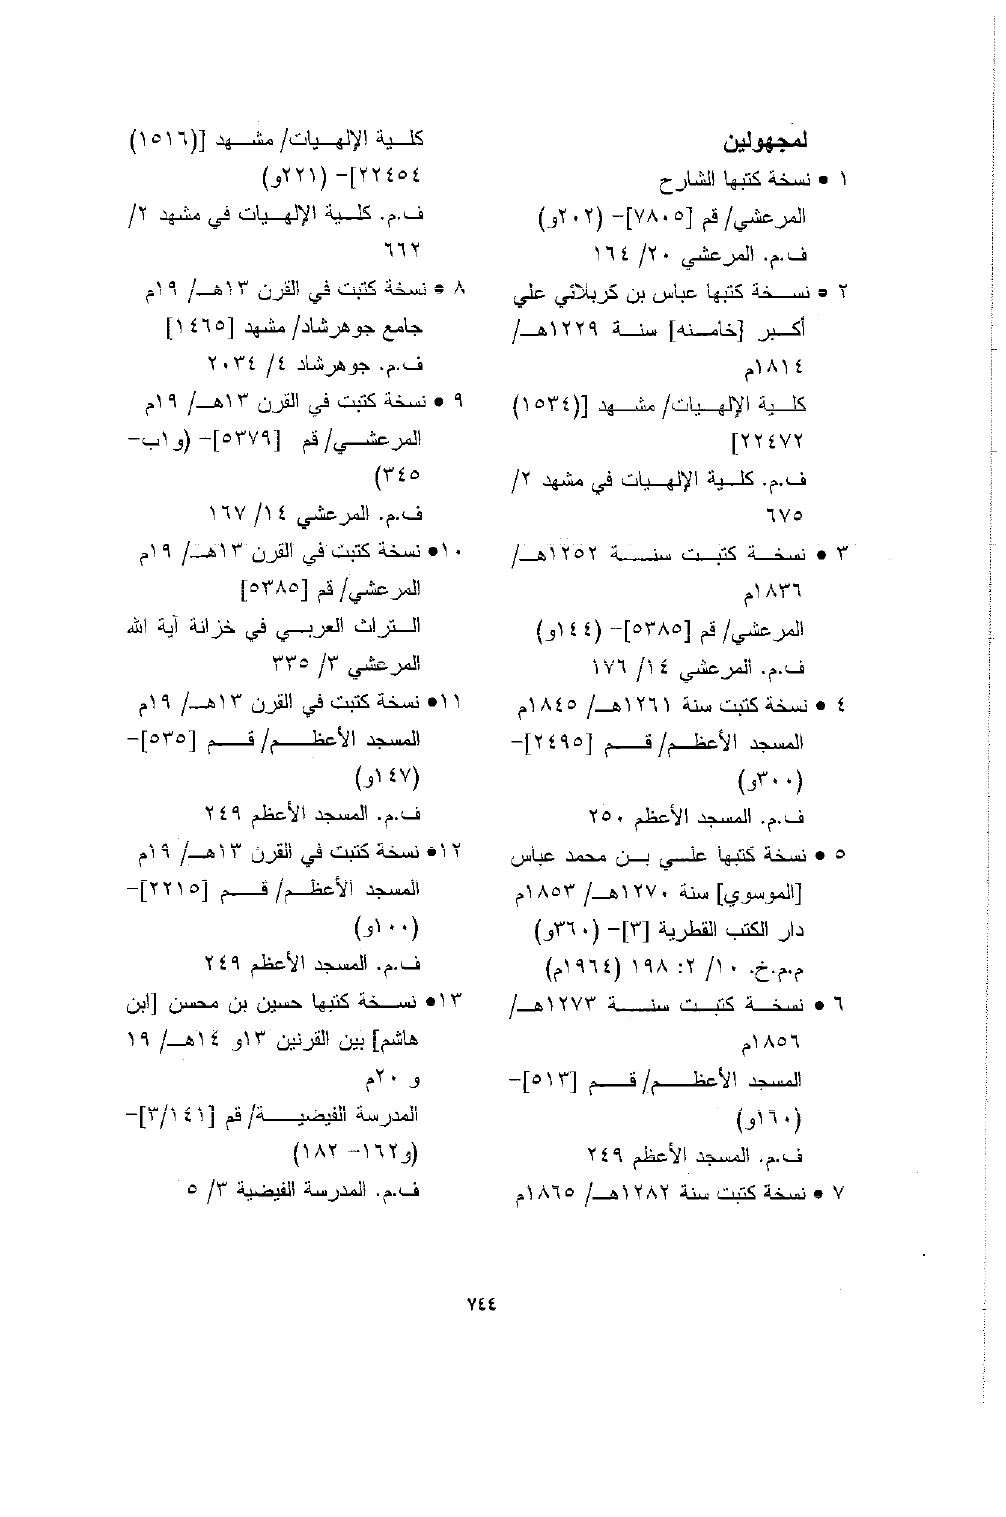 لمجهولين
١ • نسخة كتبها الشارح
المرعشي/ قم [٧٨٠٥]- (٢٠٢و)
ف.م. المرعشي ٢٠/ ١٦٤
٢ • نسـخة كتبها عباس بن كربلائي علي
أكـبر [خامـنه] سنـة ١٢٢٩هـ/
١٨١٤م
كلـية الإلهـيات/ مشـهد [(١٥٣٤)
٢٢٤٧٢]
ف.م. كلـية الإلهـيات في مشهد ٢/
٦٧٥
٣ • نسخـة كتبـت سنـة ١٢٥٢هـ/
١٨٣٦م
المرعشي/ قم [٥٣٨٥]- (١٤٤و)
ف.م. المرعشي ١٤/ ١٧٦
٤ • نسخة كتبت سنة ١٢٦١هـ/ ١٨٤٥م
المسجد الأعظـم/ قـم [٢٤٩٥]-
(٣٠٠و)
ف.م. المسجد الأعظم ٢٥٠
٥ • نسخة كتبها علـي بـن محمد عباس
[الموسوي] سنة ١٢٧٠هـ/ ١٨٥٣م
دار الكتب القطرية [٣]- (٣٦٠و)
م.م.خ. ١٠/ ٢: ١٩٨ (١٩٦٤م)
٦ • نسخـة كتبـت سنـة ١٢٧٣هـ/
١٨٥٦م
المسجد الأعظـم/ قـم [٥١٣]-
(١٦٠و)
ف.م. المسجد الأعظم ٢٤٩
٧ • نسخة كتبت سنة ١٢٨٢هـ/ ١٨٦٥م
كلـية الإلهـيات/ مشـهد [(١٥١٦)
٢٢٤٥٤]- (٢٢١و)
ف.م. كلـية الإلهـيات في مشهد ٢/
٦٦٢
٨ • نسخة كتبت في القرن ١٣هـ/ ١٩م
جامع جوهرشاد/ مشهد [١٤٦٥]
ف.م. جوهرشاد ٤/ ٢٠٣٤
٩ • نسخة كتبت في القرن ١٣هـ/ ١٩م
المرعشـي/ قم [٥٣٧٩]- (و١ب-
٣٤٥)
ف.م. المرعشي ١٤/ ١٦٧
١٠• نسخة كتبت في القرن ١٣هـ/ ١٩م
المرعشي/ قم [٥٣٨٥]
الـتراث العربـي في خزانة آية الله
المرعشي ٣/ ٣٣٥
١١• نسخة كتبت في القرن ١٣هـ/ ١٩م
المسجد الأعظـم/ قـم [٥٣٥]-
(١٤٧و)
ف.م. المسجد الأعظم ٢٤٩
١٢• نسخة كتبت في القرن ١٣هـ/ ١٩م
المسجد الأعظـم/ قـم [٢٢١٥]-
(١٠٠و)
ف.م. المسجد الأعظم ٢٤٩
١٣• نسـخة كتبها حسين بن محسن [ابن
هاشم] بين القرنين ١٣و ١٤هـ/ ١٩
و ٢٠م
المدرسة الفيضيـة/ قم [٣/١٤١]-
(و١٦٢- ١٨٢)
ف.م. المدرسة الفيضية ٣/ ٥
٧٤٤